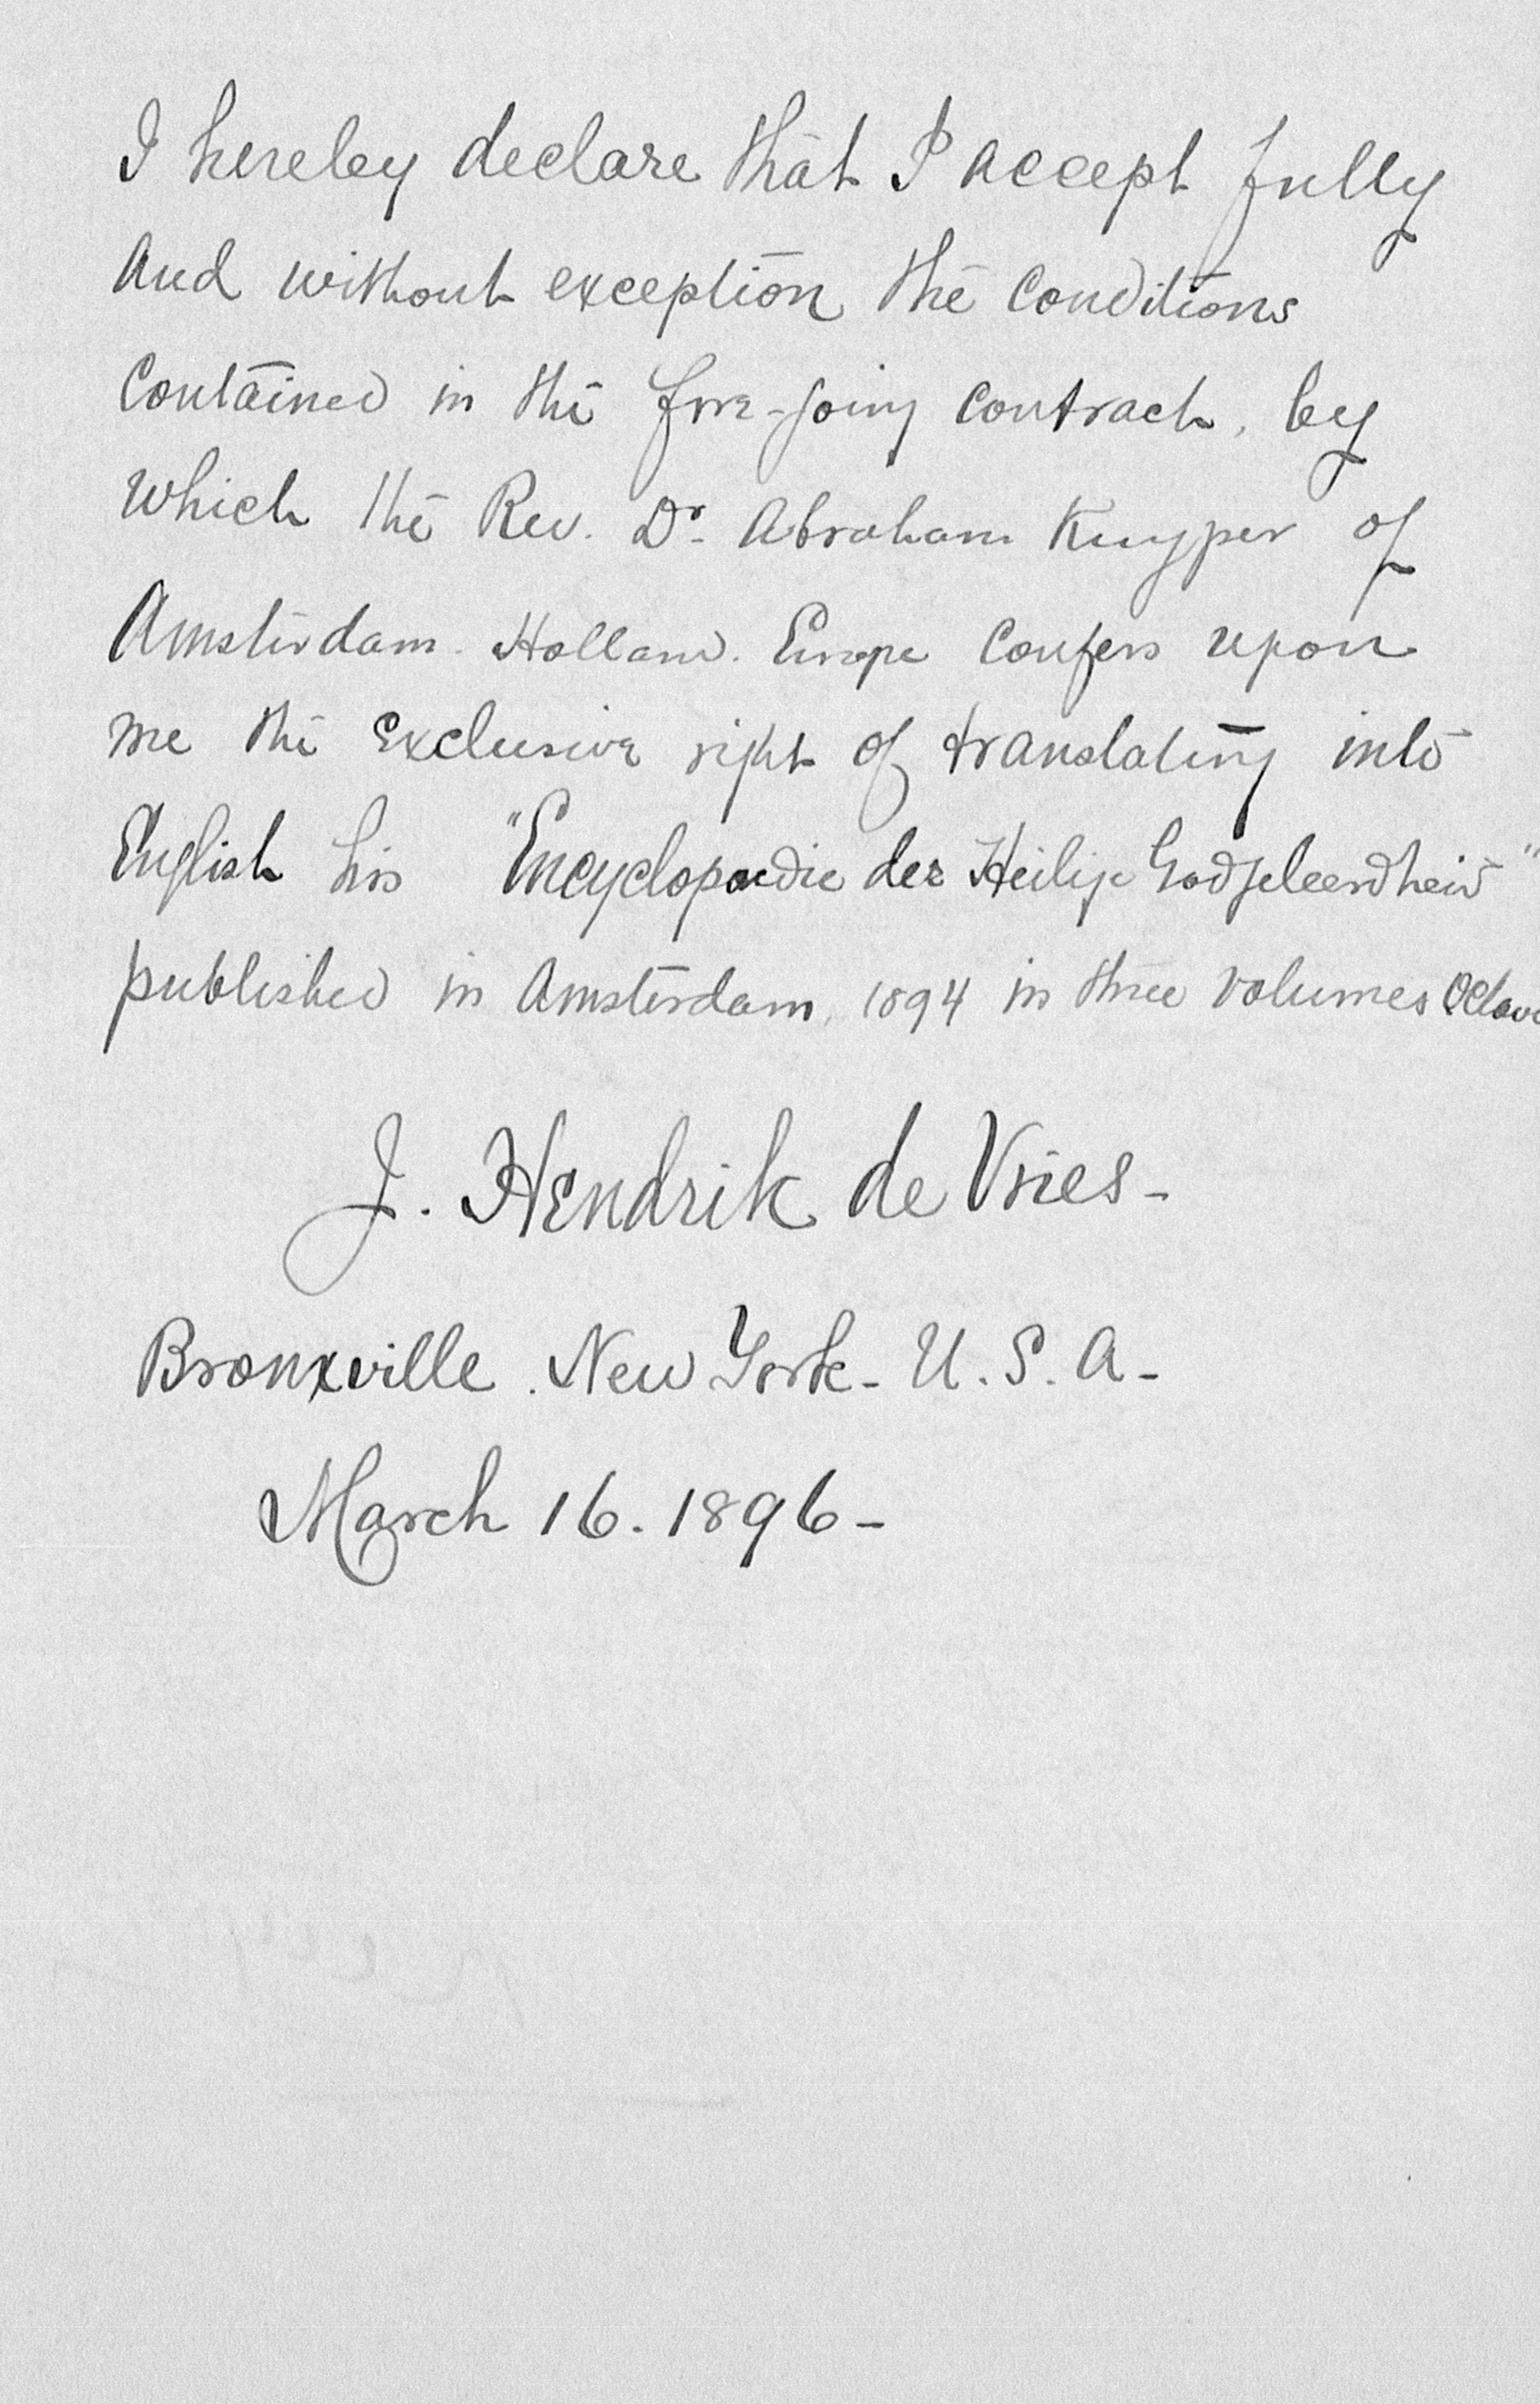 I hereby declare that I accept fully
and without exception the conditions
contained in the fore-going contract, by
which the Rev. Dr. Abraham Kuyper of
Amsterdam. Holland. Europe confers upon
me the exclusive right of translating into
English his "Encyclopaedie der Heilige Godgeleerdheid"
published in Amsterdam, 1894 in three volumes Octavo
J. Hendrik de Vries-
Bronxville. New York- U.S.A-
March 16. 1896-